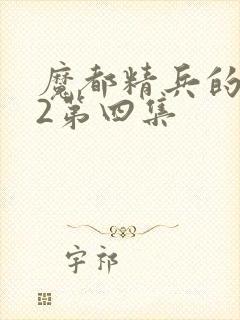 魔都精兵的
2第四集
宇祁